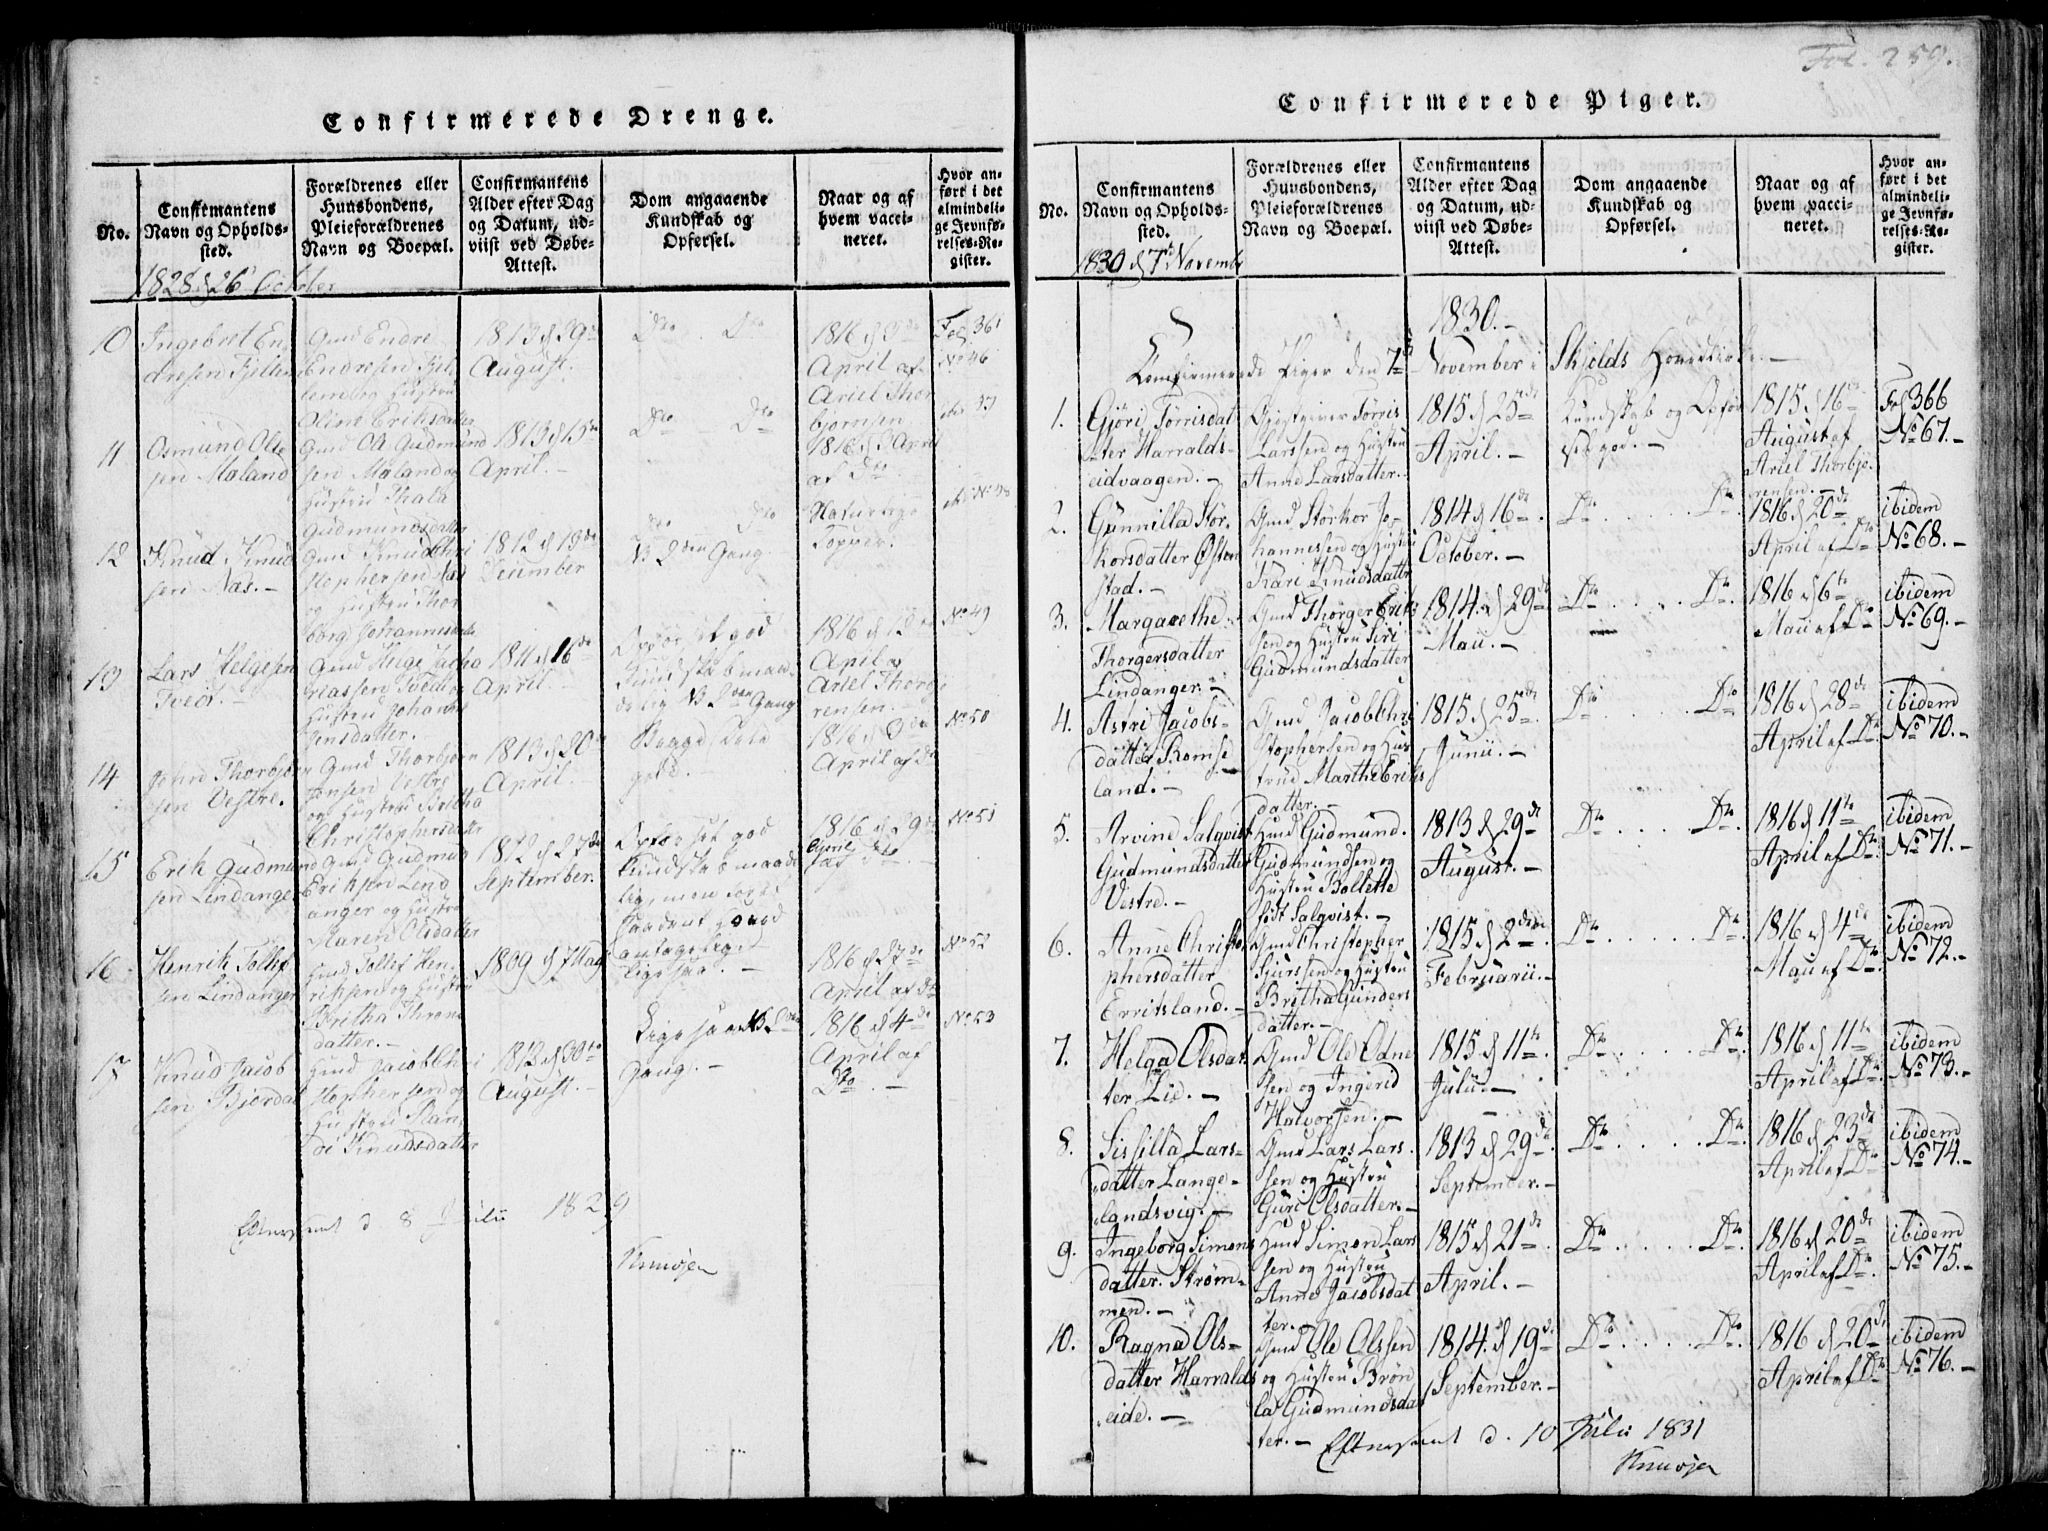 Confirmerede Drenge.
No.
Confirmantens
Navn og Opholds-
sted.
Forældrenes eller
Huusbondens,
Pleieforældrenes
Navn og Boepæl.
Confirmantens
Alder efter Dag
og Datum, ud-
viist ved Døbe-
Attest.
Dom angaaende
Kundskab og
Opførsel.
Naar og af
hvem vacci-
neret.
Hvor an-
ført i det
almindeli-
ge Jevnfø-
relses-Re-
gister.
1828 d 26 October
10
Ingebret En
dresen Fjellen
Gmd Endre
Endresen Fjel
len og Hustru
Oline Eriksdatter
1813 d 29de
August.
Dto Dto
1816 d 3de
April af
Ariel Thor
bjørnsen
Fol. 361
No 46
11
Osmund Ole
sen Maland
Gmd Ole Gudmund
sen Maland og
Hustru Thala
Gudmundsdatter
1813 d 15de
April.
Dto Dto
1816 d April
af Dto
12
Knud Knud
sen Næs.
Gmd Knud Chri
stophersen Næs
og Hustru Thor
borg Johannesdatter
1812 d 19de
December
Dto Dto
N. 2den Gang
Naturlige
Kopper.
No 48
13
Lars Helgesen
Tvedt.
Gmd Helge Zacha
riassen Tvedt og
Hustru Johanne
Jensdatter.
1811 d 16de
April
Opførsel god
Kundskab maa-
delig N. 2den Gang
1816 d 12te
April af
Ariel Thorbjø
rensen.
No 49
14
John Thorbjørn
sen Vestre.
Gmd Thorbjørn
Jonsen Vestre
og Hustru Britha
Christophersdatter
1813 d 20de
April
Begge Dele
gode.
1816 d 3de
April af Dto
No 50
15
Erik Gudmun
sen Lindanger
Gmd Gudmun
Eriksen Lind
anger og Hustru
Maren Olsdatter
1812 d 27de
September.
Opførsel god
Kundskab maade
lig, men
antagelig
ligesaa.
1816 d 29de
April
af Dto
No 51
16
Henrik Tollef
sen Lindanger
Gmd Tollef Hen
riksen og Hustru
Britha Thrond
datter.
1809 d 7 Mag
1816 d 27de
April af Dto
No 52
17
Knud Jacob
sen Bjordal
Gmd Jacob Chri
stophersen og
Hustru
Knudsdatter
1813 d 30te
August.
Ligesaa N. 2den
Gang.
1816 d 4de
April af
Dto.
No 53
Efterseet d. 8 Julii 1829
Confirmerede Piger.
Fol. 259.
No.
Confirmantens
Navn og Opholds-
sted.
Forældrenes eller
Huusbondens,
Pleieforældrenes
Navn og Boepæl.
Confirmantens
Alder efter Dag
og Datum, ud-
viist ved Døbe-
Attest.
Dom angaaende
Kundskab og
Opførsel.
Naar og af
hvem vacci-
neret.
Hvor an-
ført i det
almindeli-
ge Jevnfø-
relses-Re-
gister.
1830 d 7de Novembr
1830.
Confirmerede Piger den 7de November i Skjolds Hovedkirke.
1.
Gjøri Tørrisdat
ter Harralds-
eidvaagen.
Gjestgiver Tørris
Larssen og Hustru
Anne Larsdatter.
1815 d 25de
April.
Kundskab og Opfør
sel god.
1815 d 16de
August af
Ariel Thorbjø
rensen.
Fol 366
No 67.
2.
Gunnilla Stør-
korsdatter Østen
stad.
Gmd Størkor Jo-
hannessen og Hustru
Kari Knudsdattr
1814 d 16de
October.
Do Do
1816 d 20de
April af Do
ibidem
No 68.
3.
Margarethe
Thorgersdatter
Lindanger.
Gmd Thorger Eriks
sen og Hustru Siri
Gudmundsdatter
1814 d 29de
Maii.
Do Do
1816 d 6te
Maii af Do
ibidem
No 69.
4.
Astri Jacobs-
datter Romse
land.
Gmd Jacob Chri
stophersen og Hus
true Marthe Eriks
datter.
1815 d 25de
Junii.
Do Do
1816 d 28de
April af Do
ibidem
No 70.
5.
Arvine Salqvist
Gudmundsdatter
Vestre.
Hmd Gudmund
Gudmundsen og
Hustru Bollette
født Salqvist.
1813 d 29de
August.
Do Do
1816 d 11te
April af Do
ibidem
No 71.
6.
Anne Christo
phersdatter
Erritsland.
Gmd Christopher
Sjurssen og Hustru
Britha Gunders
datter.
1815 d 2den
Februarii.
Do Do
1816 d 4de
Maii af Do
ibidem
No 72.
7.
Helga Olsdat
ter Lie.
Gmd Ole Odne
sen og Ingerid
Halvorsen.
1815 d 11te
Julii.
Do Do
1816 d 11te
April af Do
ibidem
No 73.
8.
Sissilla Lars-
datter Lange-
landsvig.
Gmd Lars Lars
sen og Hustru
Guri Olsdatter.
1813 d 29de
September.
Do Do
1816 d 23de
April af Do
ibidem
No 74.
9.
Ingeborg Simons
datter Strøm-
men.
Hmd Simon Lars
sen og Hustru
Anne Jacobsdat
ter.
1815 d 21de
April.
Do Do
1816 d 20de
April af Do
ibidem
No 75.
10.
Ragna Ols-
datter Harralds
eide.
Gmd Ole Olssen
og Hustru Brøn
la Gudmundsdat
ter.
1814 d 19de
September.
Do Do
1816 d 20de
April af Do
ibidem
No 76.
Efterseet d. 10 Julii 1831